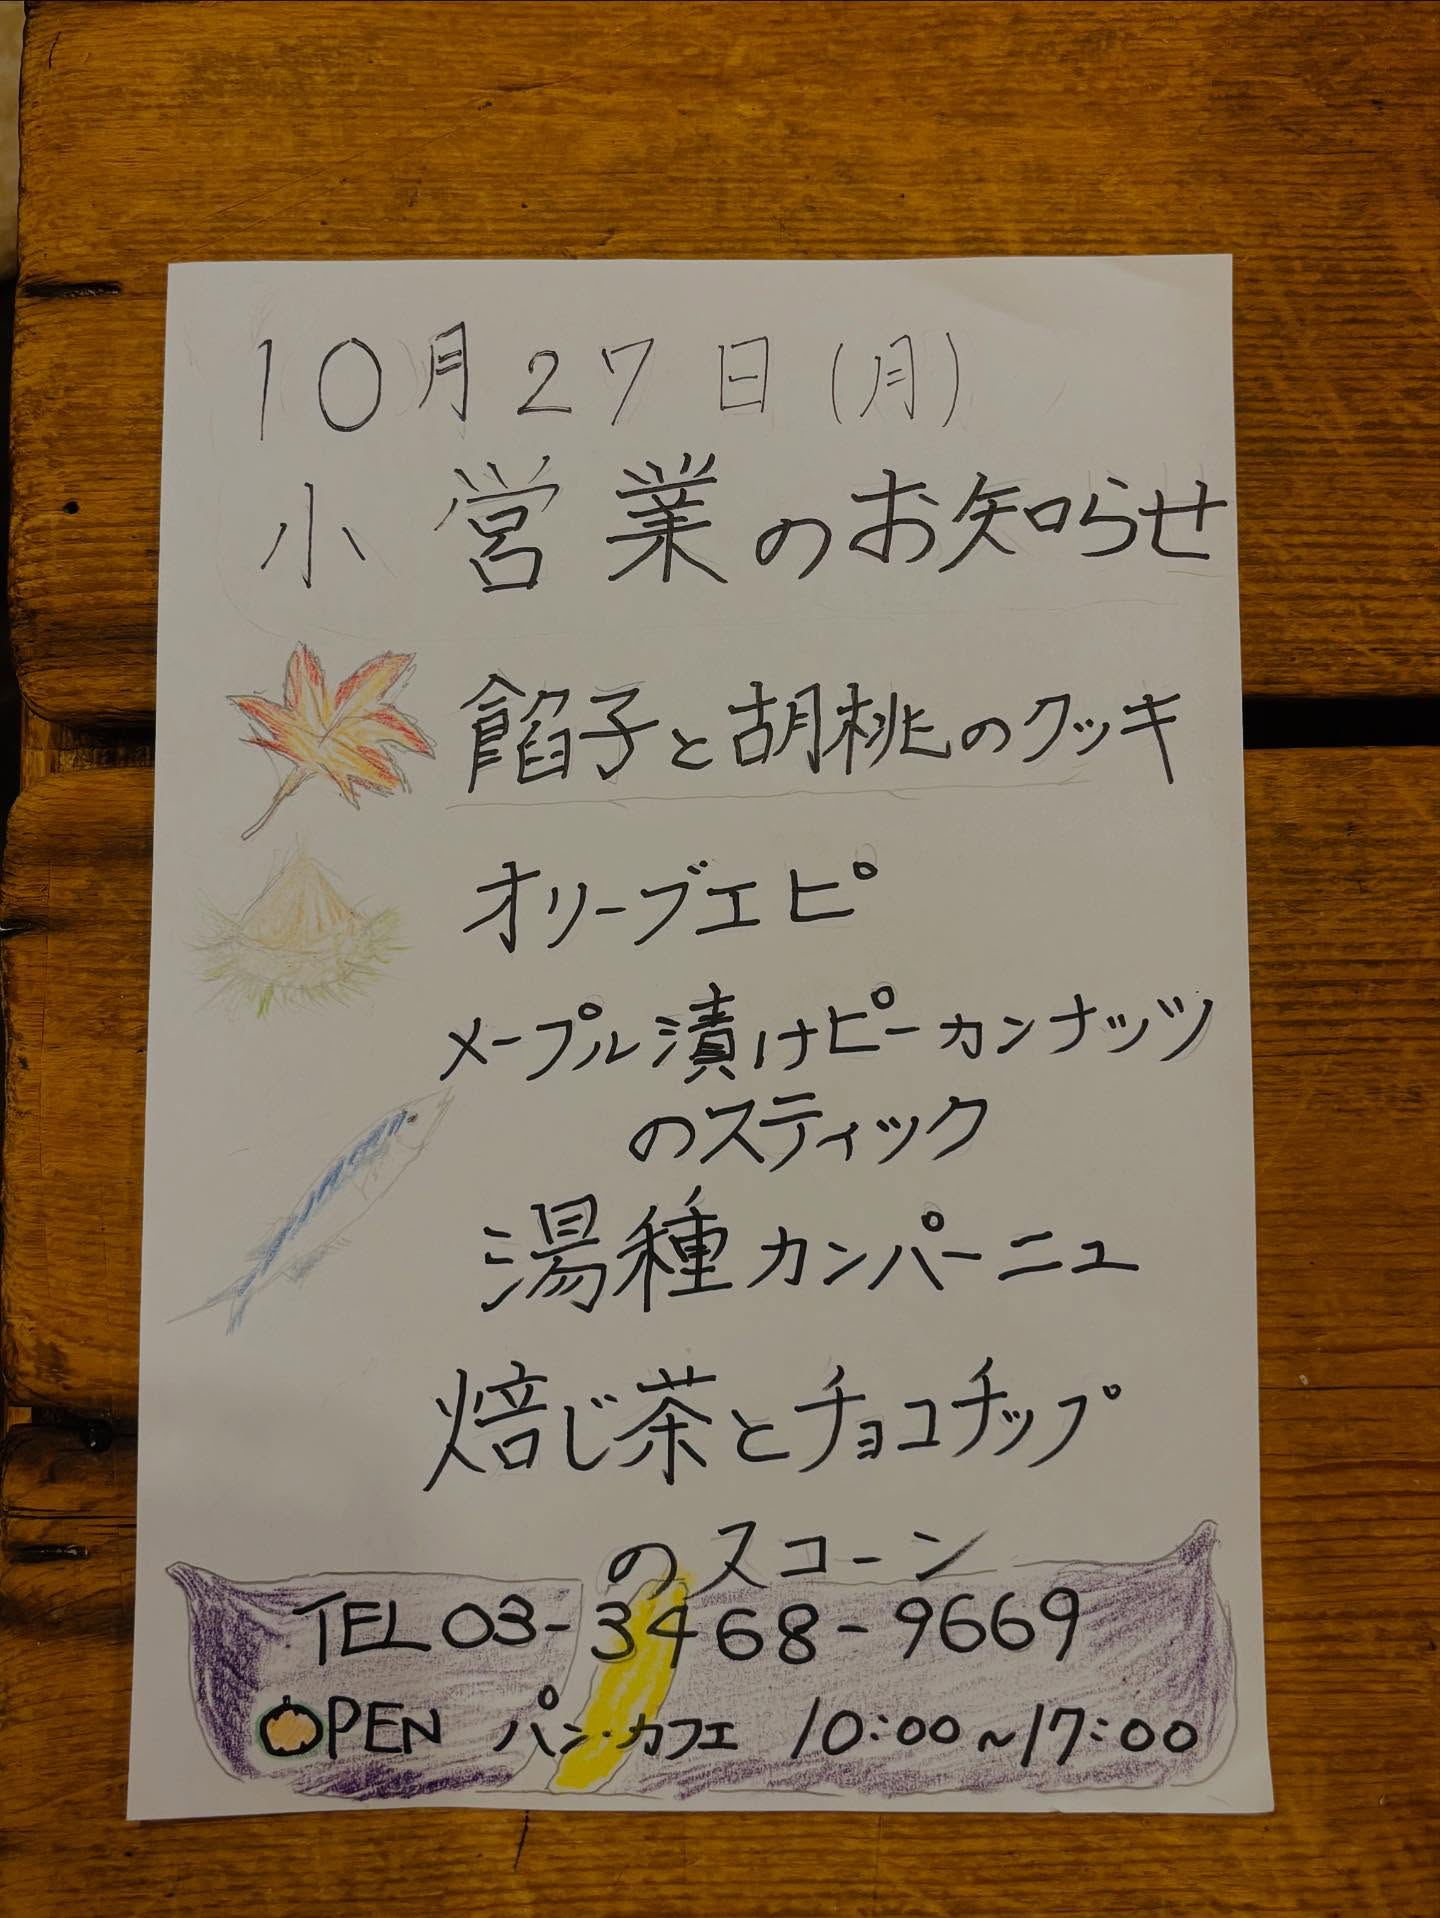 10月27日(月)
小営業のお知らせ
餡子と胡桃のクッキ
オリーブエピ
メープル漬けピーカンナッツ
のスティック
湯種カンパーニュ
焙じ茶とチョコチップ
のスコーン
TEL 03-3468-9669
OPEN パン・カフェ 10:00~17:00